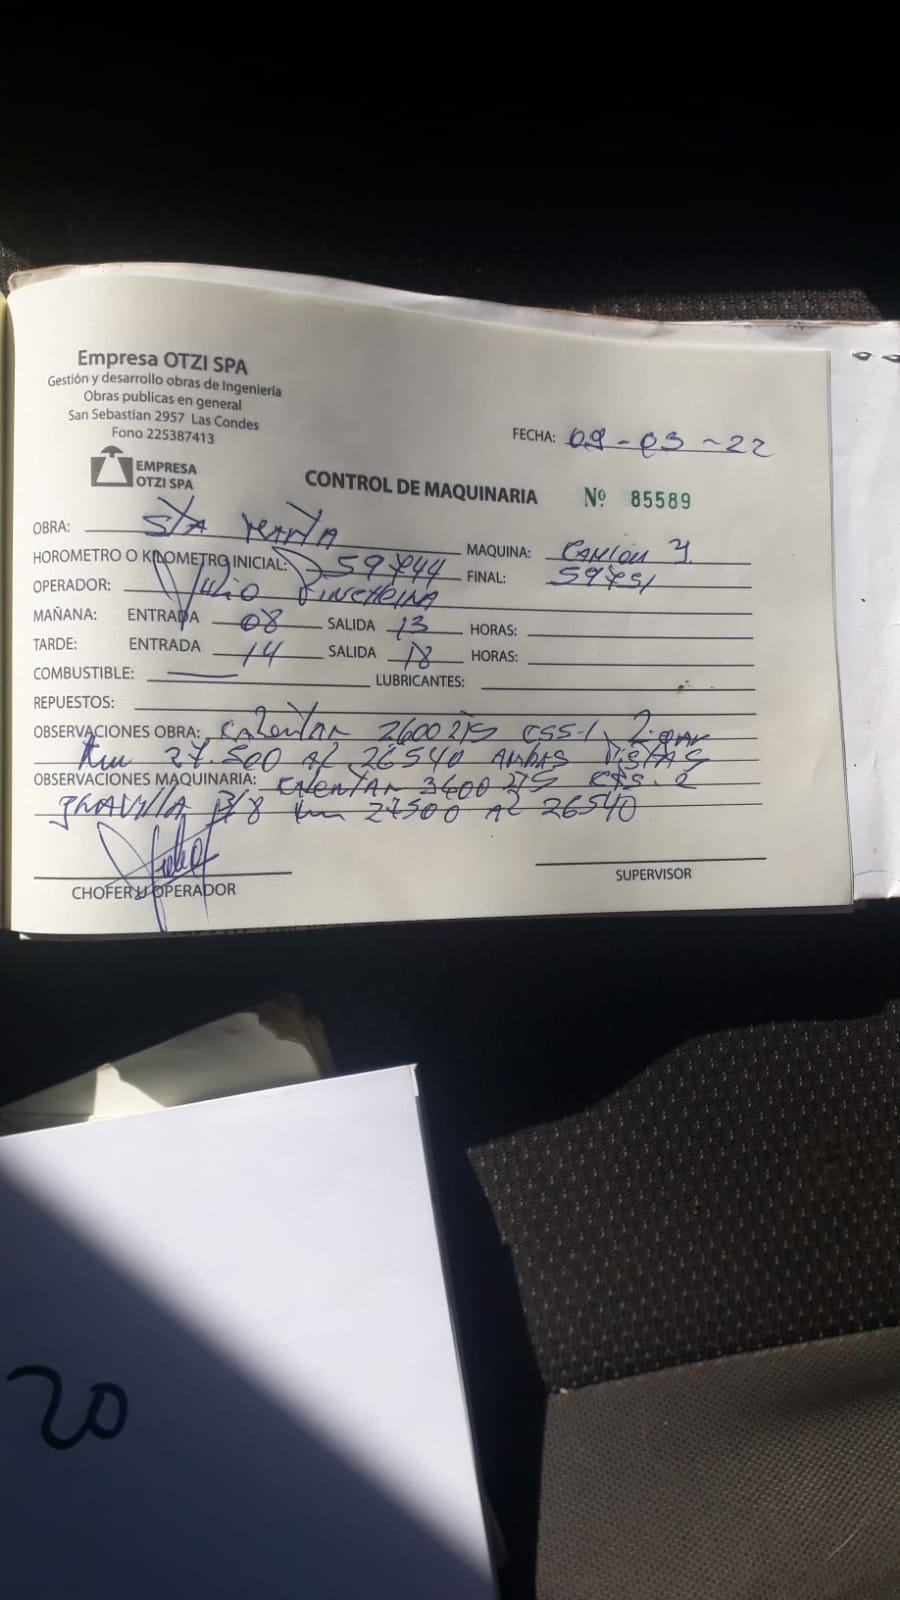 Empresa OTZI SPA
Gestión y desarrollo obras de Ingeniería
Obras publicas en general
San Sebastian 2957 Las Condes
Fono 225387413
FECHA: 09-03-22
EMPRESA
OTZI SPA
CONTROL DE MAQUINARIA Nº 85589
OBRA: STA MARTA
MAQUINA: CAMION
HOROMETRO O KILOMETRO INICIAL: 59744 FINAL: 59751
OPERADOR: Julio
MAÑANA: ENTRADA 08 SALIDA 13 HORAS:
TARDE: ENTRADA 14 SALIDA 18 HORAS:
COMBUSTIBLE: LUBRICANTES:
REPUESTOS:
OBSERVACIONES OBRA: CALENTAR 2600 LTS CSS-1
Km 27.500 AL 26540 AMBAS PISTAS
OBSERVACIONES MAQUINARIA: CALENTAR 3400 LTS
GRAVILLA 3/8 Km 27500 AL 26540
CHOFER U OPERADOR
SUPERVISOR
20